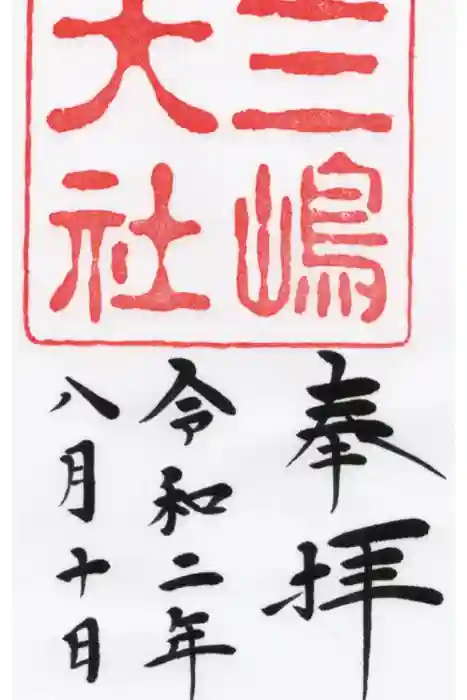 三嶋
大社
奉拝
令和二年
八月十日